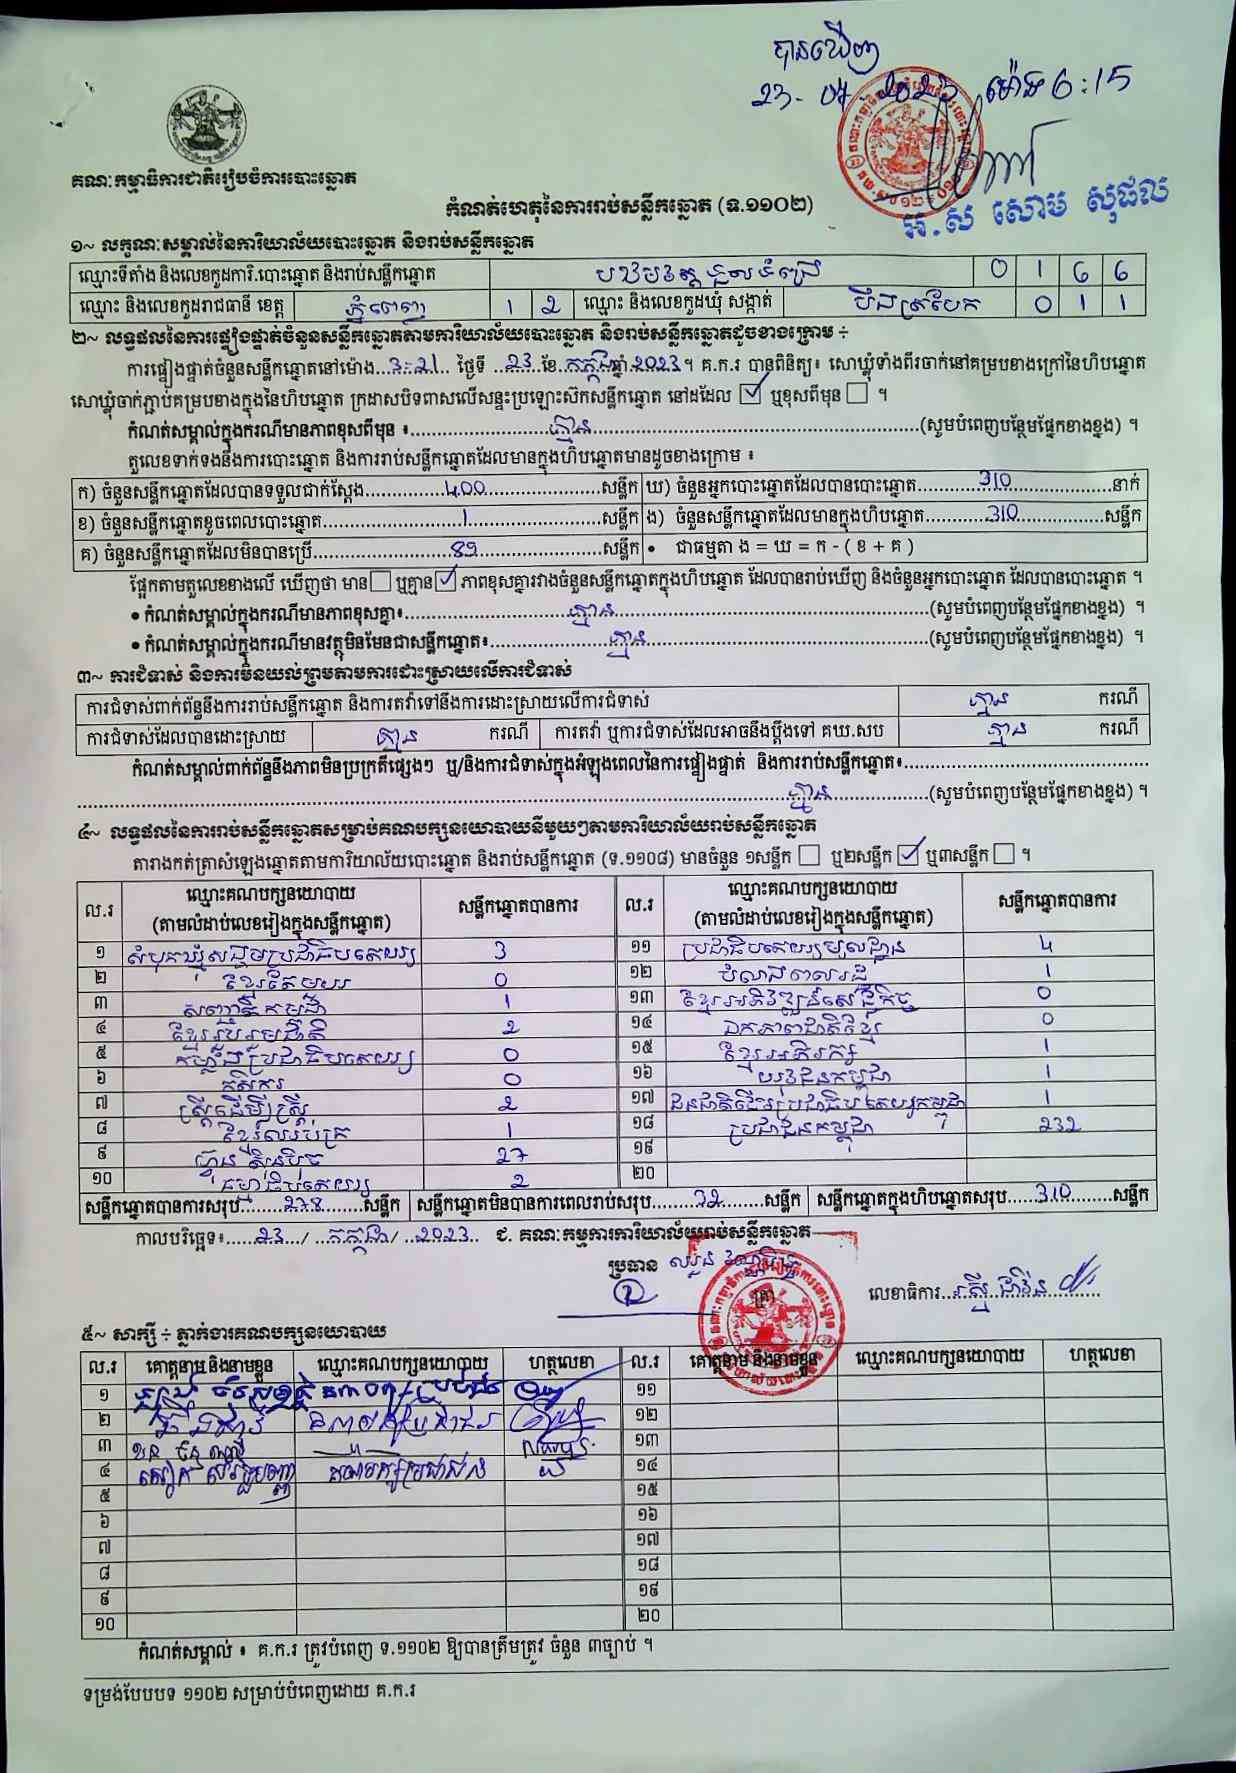 បានឃើញ
23-07-2023 ម៉ោង 6:15
អ.ស សោម សុផល
គណៈកម្មាធិការជាតិរៀបចំការបោះឆ្នោត
កំណត់ហេតុនៃការរាប់សន្លឹកឆ្នោត (ទ.១១០២)
១~ លក្ខណៈសម្គាល់នៃការិយាល័យបោះឆ្នោត និងរាប់សន្លឹកឆ្នោត
ឈ្មោះទីតាំង និងលេខកូដការិ.បោះឆ្នោត និងរាប់សន្លឹកឆ្នោត 0 1 6 6
ឈ្មោះ និងលេខកូដរាជធានី ខេត្ត ភ្នំពេញ 1 2 ឈ្មោះ និងលេខកូដឃុំ សង្កាត់ បឹងត្របែក 0 1 1
២~ លទ្ធផលនៃការផ្ទៀងផ្ទាត់ចំនួនសន្លឹកឆ្នោតតាមការិយាល័យបោះឆ្នោត និងរាប់សន្លឹកឆ្នោតដូចខាងក្រោម ÷
ការផ្ទៀងផ្ទាត់ចំនួនសន្លឹកឆ្នោតនៅម៉ោង...3:21... ថ្ងៃទី ...23...ខែ.កក្កដា.ឆ្នាំ.2023.។ គ.ក.រ បានពិនិត្យ៖ សោឃ្លុំទាំងពីរចាក់នៅគម្របខាងក្រៅនៃហិបឆ្នោត
សោឃ្លុំចាក់ភ្ជាប់គម្របខាងក្នុងនៃហិបឆ្នោត ក្រដាសបិទពាសលើសន្ទះប្រឡោះស៊កសន្លឹកឆ្នោត នៅដដែល ☑ ឬខុសពីមុន ☐ ។
កំណត់សម្គាល់ក្នុងករណីមានភាពខុសពីមុន ៖......គ្មាន......(សូមបំពេញបន្ថែមផ្នែកខាងខ្នង) ។
តួលេខទាក់ទងនឹងការបោះឆ្នោត និងការរាប់សន្លឹកឆ្នោតដែលមានក្នុងហិបឆ្នោតមានដូចខាងក្រោម ៖
ក) ចំនួនសន្លឹកឆ្នោតដែលបានទទួលជាក់ស្ដែង......400......សន្លឹក ឃ) ចំនួនអ្នកបោះឆ្នោតដែលបានបោះឆ្នោត......310......នាក់
ខ) ចំនួនសន្លឹកឆ្នោតខូចពេលបោះឆ្នោត......1......សន្លឹក ង) ចំនួនសន្លឹកឆ្នោតដែលមានក្នុងហិបឆ្នោត......310......សន្លឹក
គ) ចំនួនសន្លឹកឆ្នោតដែលមិនបានប្រើ......89......សន្លឹក • ជាធម្មតា ង = ឃ = ក - ( ខ + គ )
ផ្អែកតាមតួលេខខាងលើ ឃើញថា មាន☐ ឬគ្មាន☑ ភាពខុសគ្នារវាងចំនួនសន្លឹកឆ្នោតក្នុងហិបឆ្នោត ដែលបានរាប់ឃើញ និងចំនួនអ្នកបោះឆ្នោត ដែលបានបោះឆ្នោត ។
• កំណត់សម្គាល់ក្នុងករណីមានភាពខុសគ្នា៖......គ្មាន......(សូមបំពេញបន្ថែមផ្នែកខាងខ្នង) ។
• កំណត់សម្គាល់ក្នុងករណីមានវត្ថុមិនមែនជាសន្លឹកឆ្នោត៖......គ្មាន......(សូមបំពេញបន្ថែមផ្នែកខាងខ្នង) ។
៣~ ការជំទាស់ និងការមិនយល់ព្រមតាមការដោះស្រាយលើការជំទាស់
ការជំទាស់ពាក់ព័ន្ធនឹងការរាប់សន្លឹកឆ្នោត និងការតវ៉ាទៅនឹងការដោះស្រាយលើការជំទាស់ គ្មាន ករណី
ការជំទាស់ដែលបានដោះស្រាយ គ្មាន ករណី ការតវ៉ា ឬការជំទាស់ដែលអាចនឹងប្ដឹងទៅ គឃ.សប គ្មាន ករណី
កំណត់សម្គាល់ពាក់ព័ន្ធនឹងភាពមិនប្រក្រតីផ្សេងៗ ឬ/និងការជំទាស់ក្នុងអំឡុងពេលនៃការផ្ទៀងផ្ទាត់ និងការរាប់សន្លឹកឆ្នោត៖......
......គ្មាន......(សូមបំពេញបន្ថែមផ្នែកខាងខ្នង) ។
៤~ លទ្ធផលនៃការរាប់សន្លឹកឆ្នោតសម្រាប់គណបក្សនយោបាយនីមួយៗតាមការិយាល័យរាប់សន្លឹកឆ្នោត
តារាងកត់ត្រាសំឡេងឆ្នោតតាមការិយាល័យបោះឆ្នោត និងរាប់សន្លឹកឆ្នោត (ទ.១១០៨) មានចំនួន ១សន្លឹក ☐ ឬ២សន្លឹក ☑ ឬ៣សន្លឹក ☐ ។
ល.រ ឈ្មោះគណបក្សនយោបាយ (តាមលំដាប់លេខរៀងក្នុងសន្លឹកឆ្នោត) សន្លឹកឆ្នោតបានការ ល.រ ឈ្មោះគណបក្សនយោបាយ (តាមលំដាប់លេខរៀងក្នុងសន្លឹកឆ្នោត) សន្លឹកឆ្នោតបានការ
១ សំបុកឃ្មុំសង្គមប្រជាធិបតេយ្យ 3 ១១ ប្រជាធិបតេយ្យមូលដ្ឋាន 4
២ ខ្មែរតែមួយ 0 ១២ បំណងពលរដ្ឋ 1
៣ សញ្ជាតិកម្ពុជា 1 ១៣ ខ្មែរអភិវឌ្ឍន៍សេដ្ឋកិច្ច 0
៤ ខ្មែររួបរួមជាតិ 2 ១៤ ឯកភាពជាតិខ្មែរ 0
៥ កម្លាំងប្រជាធិបតេយ្យ 0 ១៥ ខ្មែរអភិរក្ស 1
៦ កសិករ 0 ១៦ យុវជនកម្ពុជា 1
៧ ស្ត្រីដើម្បីស្ត្រី 2 ១៧ ជនជាតិដើមប្រជាធិបតេយ្យកម្ពុជា 1
៨ ខ្មែរឈប់ក្រ 1 ១៨ ប្រជាជនកម្ពុជា 232
៩ ហ៊្វុនស៊ិនប៉ិច 27 ១៩
១០ ធម្មាធិបតេយ្យ 2 ២០
សន្លឹកឆ្នោតបានការសរុប......278......សន្លឹក សន្លឹកឆ្នោតមិនបានការពេលរាប់សរុប......32......សន្លឹក សន្លឹកឆ្នោតក្នុងហិបឆ្នោតសរុប......310......សន្លឹក
កាលបរិច្ឆេទ៖...23.../...កក្កដា/...2023.. ជ. គណៈកម្មការការិយាល័យរាប់សន្លឹកឆ្នោត
ប្រធាន
លេខាធិការ
៥~ សាក្សី ÷ ភ្នាក់ងារគណបក្សនយោបាយ
ល.រ គោត្តនាម និងនាមខ្លួន ឈ្មោះគណបក្សនយោបាយ ហត្ថលេខា ល.រ គោត្តនាម និងនាមខ្លួន ឈ្មោះគណបក្សនយោបាយ ហត្ថលេខា
១ ១១
២ គណបក្សប្រជាជន ១២
៣ ១៣
៤ គណបក្សប្រជាជន ១៤
៥ ១៥
៦ ១៦
៧ ១៧
៨ ១៨
៩ ១៩
១០ ២០
កំណត់សម្គាល់ ៖ គ.ក.រ ត្រូវបំពេញ ទ.១១០២ ឱ្យបានត្រឹមត្រូវ ចំនួន ៣ច្បាប់ ។
ទម្រង់បែបបទ ១១០២ សម្រាប់បំពេញដោយ គ.ក.រ